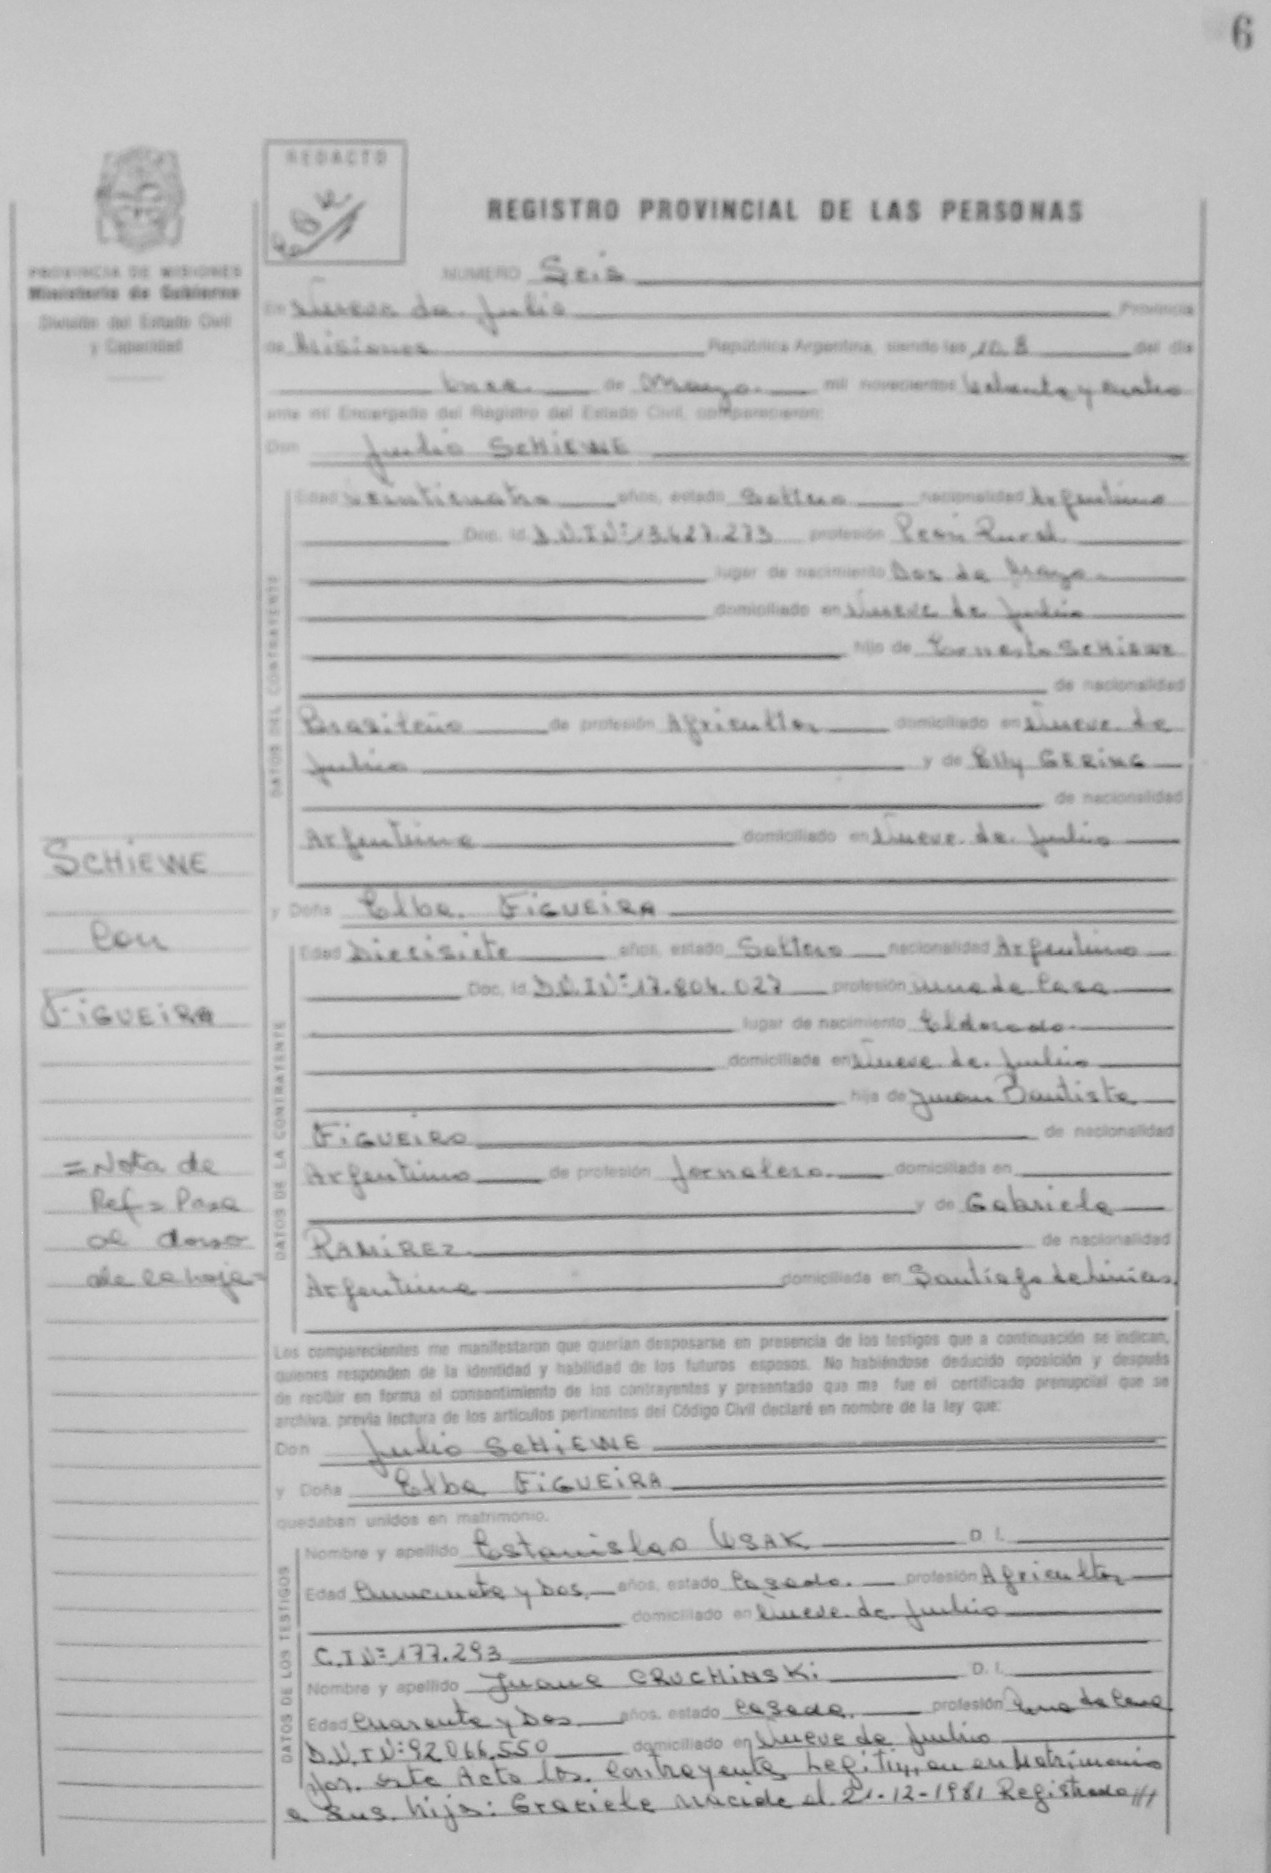 6
REDACTO
REGISTRO PROVINCIAL DE LAS PERSONAS
PROVINCIA DE MISIONES
Ministerio de Gobierno
División del Estado Civil
y Capacidad
NUMERO Seis
En Nueve de Julio Provincia
de Misiones República Argentina, siendo las 10.8 del día
once de Marzo mil novecientos ochenta y cuatro
ante mí Encargado del Registro del Estado Civil, comparecieron:
Don Julio SCHIEWE
DATOS DEL CONTRAYENTE
Edad Veinticuatro años, estado Soltero nacionalidad Argentino
Doc. Id. D.N.I Nº 13.427.273 profesión Peón Rural
lugar de nacimiento Dos de Mayo
domiciliado en Nueve de Julio
hijo de Ernesto SCHIEWE
de nacionalidad
Brasileño de profesión Agricultor domiciliado en Nueve de
Julio y de Elly GERING
de nacionalidad
Argentina domiciliado en Nueve de Julio
SCHIEWE
con
FIGUEIRA
=Nota de
Ref= Pasa
al dorso
de la hoja=
y Doña Elba FIGUEIRA
DATOS DE LA CONTRAYENTE
Edad Diecisiete años, estado Soltera nacionalidad Argentina
Doc. Id. D.N.I Nº 17.804.027 profesión Ama de Casa
lugar de nacimiento Eldorado
domiciliada en Nueve de Julio
hija de Juan Bautista
FIGUEIRO de nacionalidad
Argentino de profesión Jornalero domiciliado en
y de Gabriela
RAMIREZ de nacionalidad
Argentina domiciliada en Santiago de Liniers
Los comparecientes me manifestaron que querían desposarse en presencia de los testigos que a continuación se indican,
quienes responden de la identidad y habilidad de los futuros esposos. No habiéndose deducido oposición y después
de recibir en forma el consentimiento de los contrayentes y presentado que me fue el certificado prenupcial que se
archiva, previa lectura de los artículos pertinentes del Código Civil declaré en nombre de la ley que:
Don Julio SCHIEWE
y Doña Elba FIGUEIRA
quedaban unidos en matrimonio.
DATOS DE LOS TESTIGOS
Nombre y apellido Estanislao D. I.
Edad Cincuenta y Dos años, estado Casado profesión Agricultor
domiciliado en Nueve de Julio
C.I Nº 177.293
Nombre y apellido Juana CRUCHINSKI D. I.
Edad Cuarenta y Dos años, estado Casada profesión Ama de Casa
D.N.I Nº 92.066.550 domiciliado en Nueve de Julio
Por este Acto los Contrayentes Legitiman en Matrimonio
a sus hijs: Graciela nacida el 21-12-1981 Registrada ///